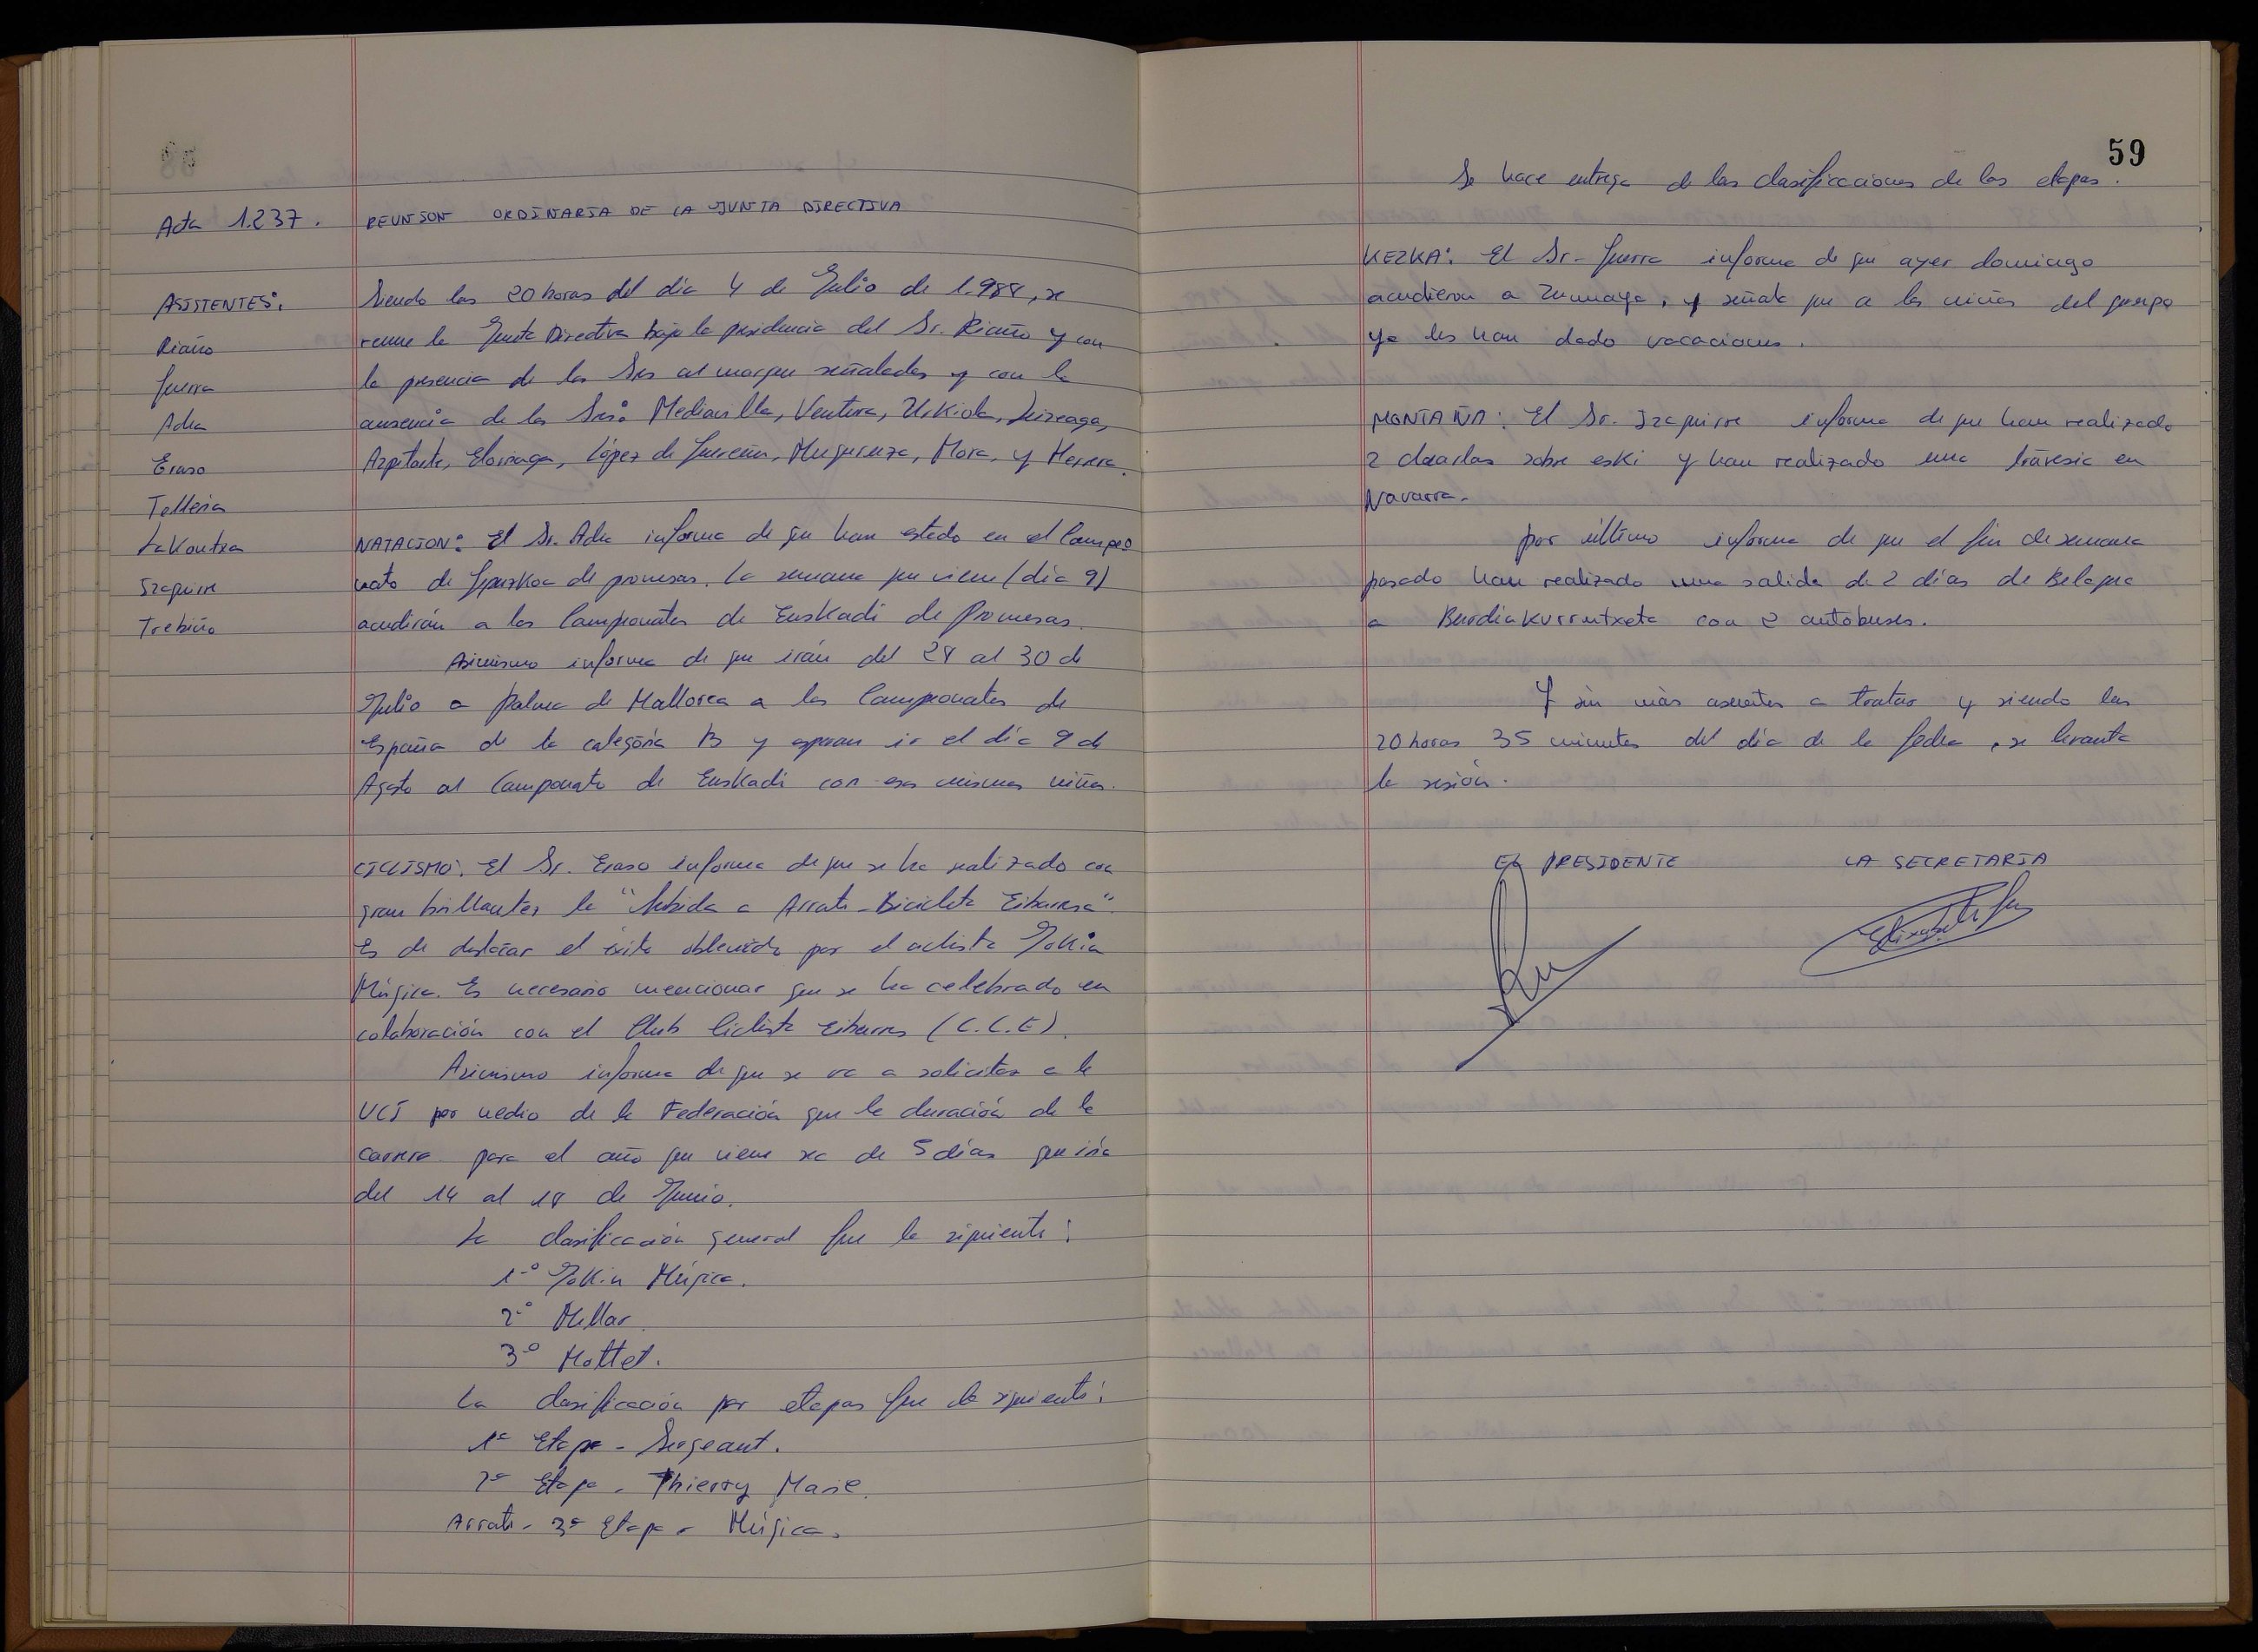 Acta 1.237. REUNION ORDINARIA DE LA JUNTA DIRECTIVA
ASISTENTES:
Riaño
Guerra
Adra
Eraso
Telleria
Lakontxa
Izaguirre
Trebiño
Siendo las 20 horas del día 4 de Julio de 1.988, se
reune la Junta Directiva bajo la presidencia del Sr. Riaño y con
la presencia de los Sres al margen señalados y con la
ausencia de los Sres: Mediavilla, Ventura, Urkiola,
Azpitarte, Elorriaga, López de Guereñu, Muguruza, Mora, y Herrera.
NATACION: El Sr. Adra informa de que han estado en el Campeo
nato de Gipuzkoa de promesas. La semana que viene (día 9)
acudirán a los Campeonatos de Euskadi de Promesas.
Asimismo informa de que irán del 28 al 30 de
Julio a Palma de Mallorca a los Campeonatos de
España de la categoría B y esperan ir el día 9 de
Agosto al Campeonato de Euskadi con esos mismos niños.
CICLISMO: El Sr. Eraso informa de que se ha realizado con
gran brillantez la "Subida a Arrate-Bicicleta Eibarresa".
Es de destacar el éxito obtenido por el ciclista Jokin
Múgica. Es necesario mencionar que se ha celebrado en
colaboración con el Club Ciclista Eibarres (C.C.E).
Asimismo informa de que se va a solicitar a la
UCI por medio de la Federación que la duración de la
carrera para el año que viene sea de 5 días que iría
del 14 al 18 de Junio.
La clasificación general fue la siguiente:
1º Jokin Múgica.
2º Millar.
3º Mottet.
La clasificación por etapas fue la siguiente:
1ª Etapa - Sergeant.
2ª Etapa - Thierry Marie.
Arrate - 3ª Etapa - Múgica.
59
Se hace entrega de las clasificaciones de las etapas.
KEZKA: El Sr. Guerra informa de que ayer domingo
acudieron a Zumaya, y señala que a los niños del grupo
ya les han dado vacaciones.
MONTAÑA: El Sr. Izaguirre informa de que han realizado
2 charlas sobre eski y han realizado una travesía en
Navarra.
Por último informa de que el fin de semana
pasado han realizado una salida de 2 días de Belagua
a Burdiakurrutxeta con 2 autobuses.
Y sin más asuntos a tratar y siendo las
20 horas 35 minutos del día de la fecha, se levanta
la sesión.
EL PRESIDENTE LA SECRETARIA